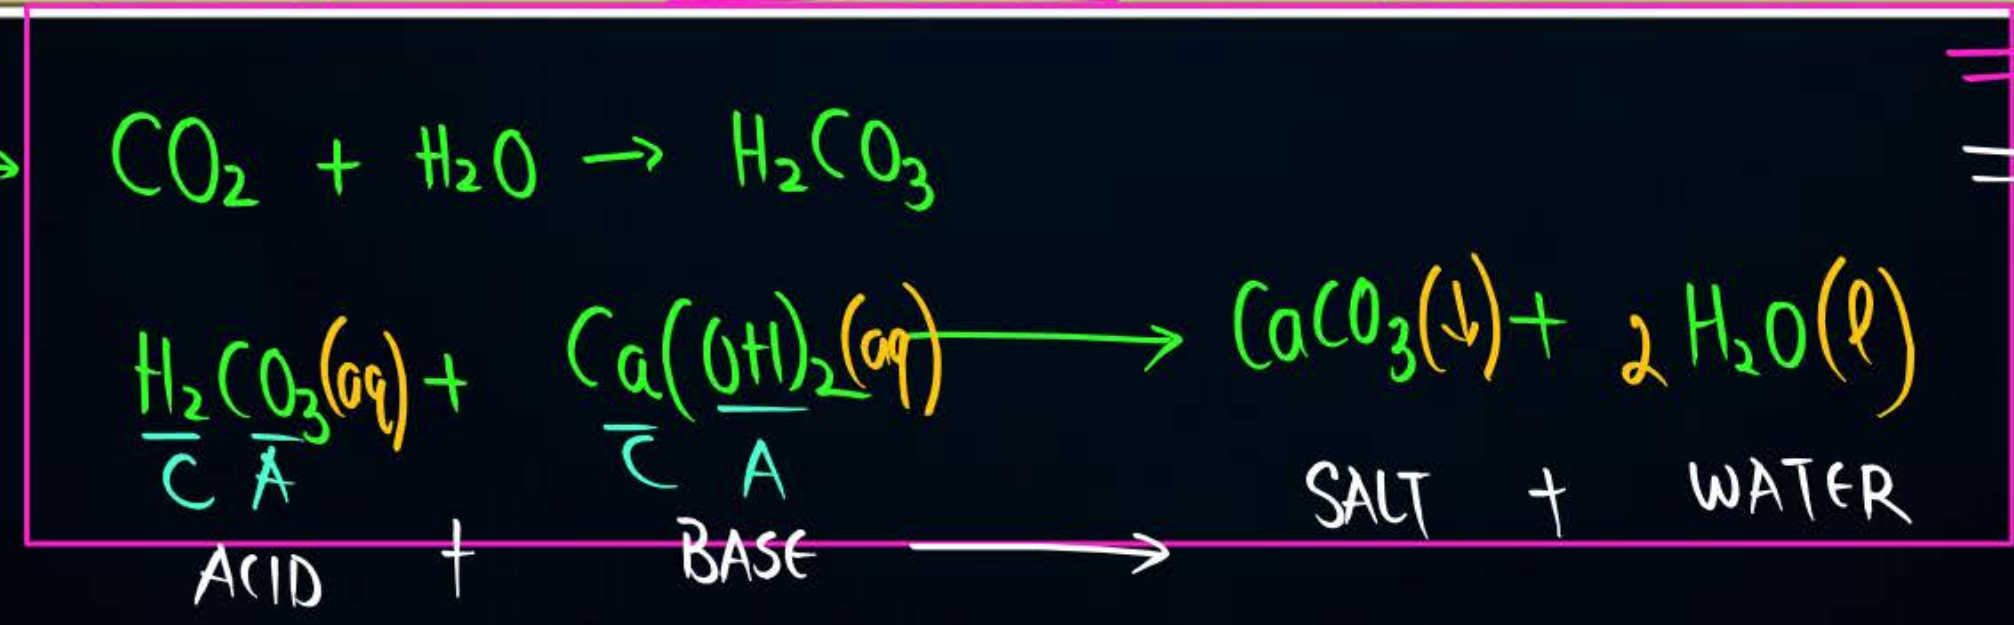 CO₂ + H₂O → H₂CO₃
H₂CO₃(aq) + Ca(OH)₂(aq) → CaCO₃(↓) + 2 H₂O(l)
C A C A
SALT + WATER
ACID + BASE →